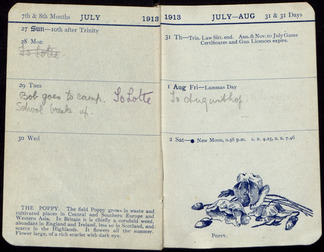 7th & 8th Months JULY 1913
27 Sun—10th after Trinity
28 Mon
To Lotte
29 Tues
Bob goes to camp. To Lotte
School breaks up.
30 Wed
THE POPPY. The field Poppy grows in waste and
cultivated places in Central and Southern Europe and
Western Asia. In Britain it is chiefly a cornfield weed,
abundant in England and Ireland, less so in Scotland, and
scarce in the Highlands. It flowers all the summer.
Flower large, of a rich scarlet with dark eye.
1913 JULY—AUG 31 & 31 Days
31 Th—Trin. Law Sitt. end. Ass. & Nov. to July Game
Certificates and Gun Licences expire.
1 Aug Fri—Lammas Day
To
2 Sat—● New Moon, 0.58 p.m.
POPPY.